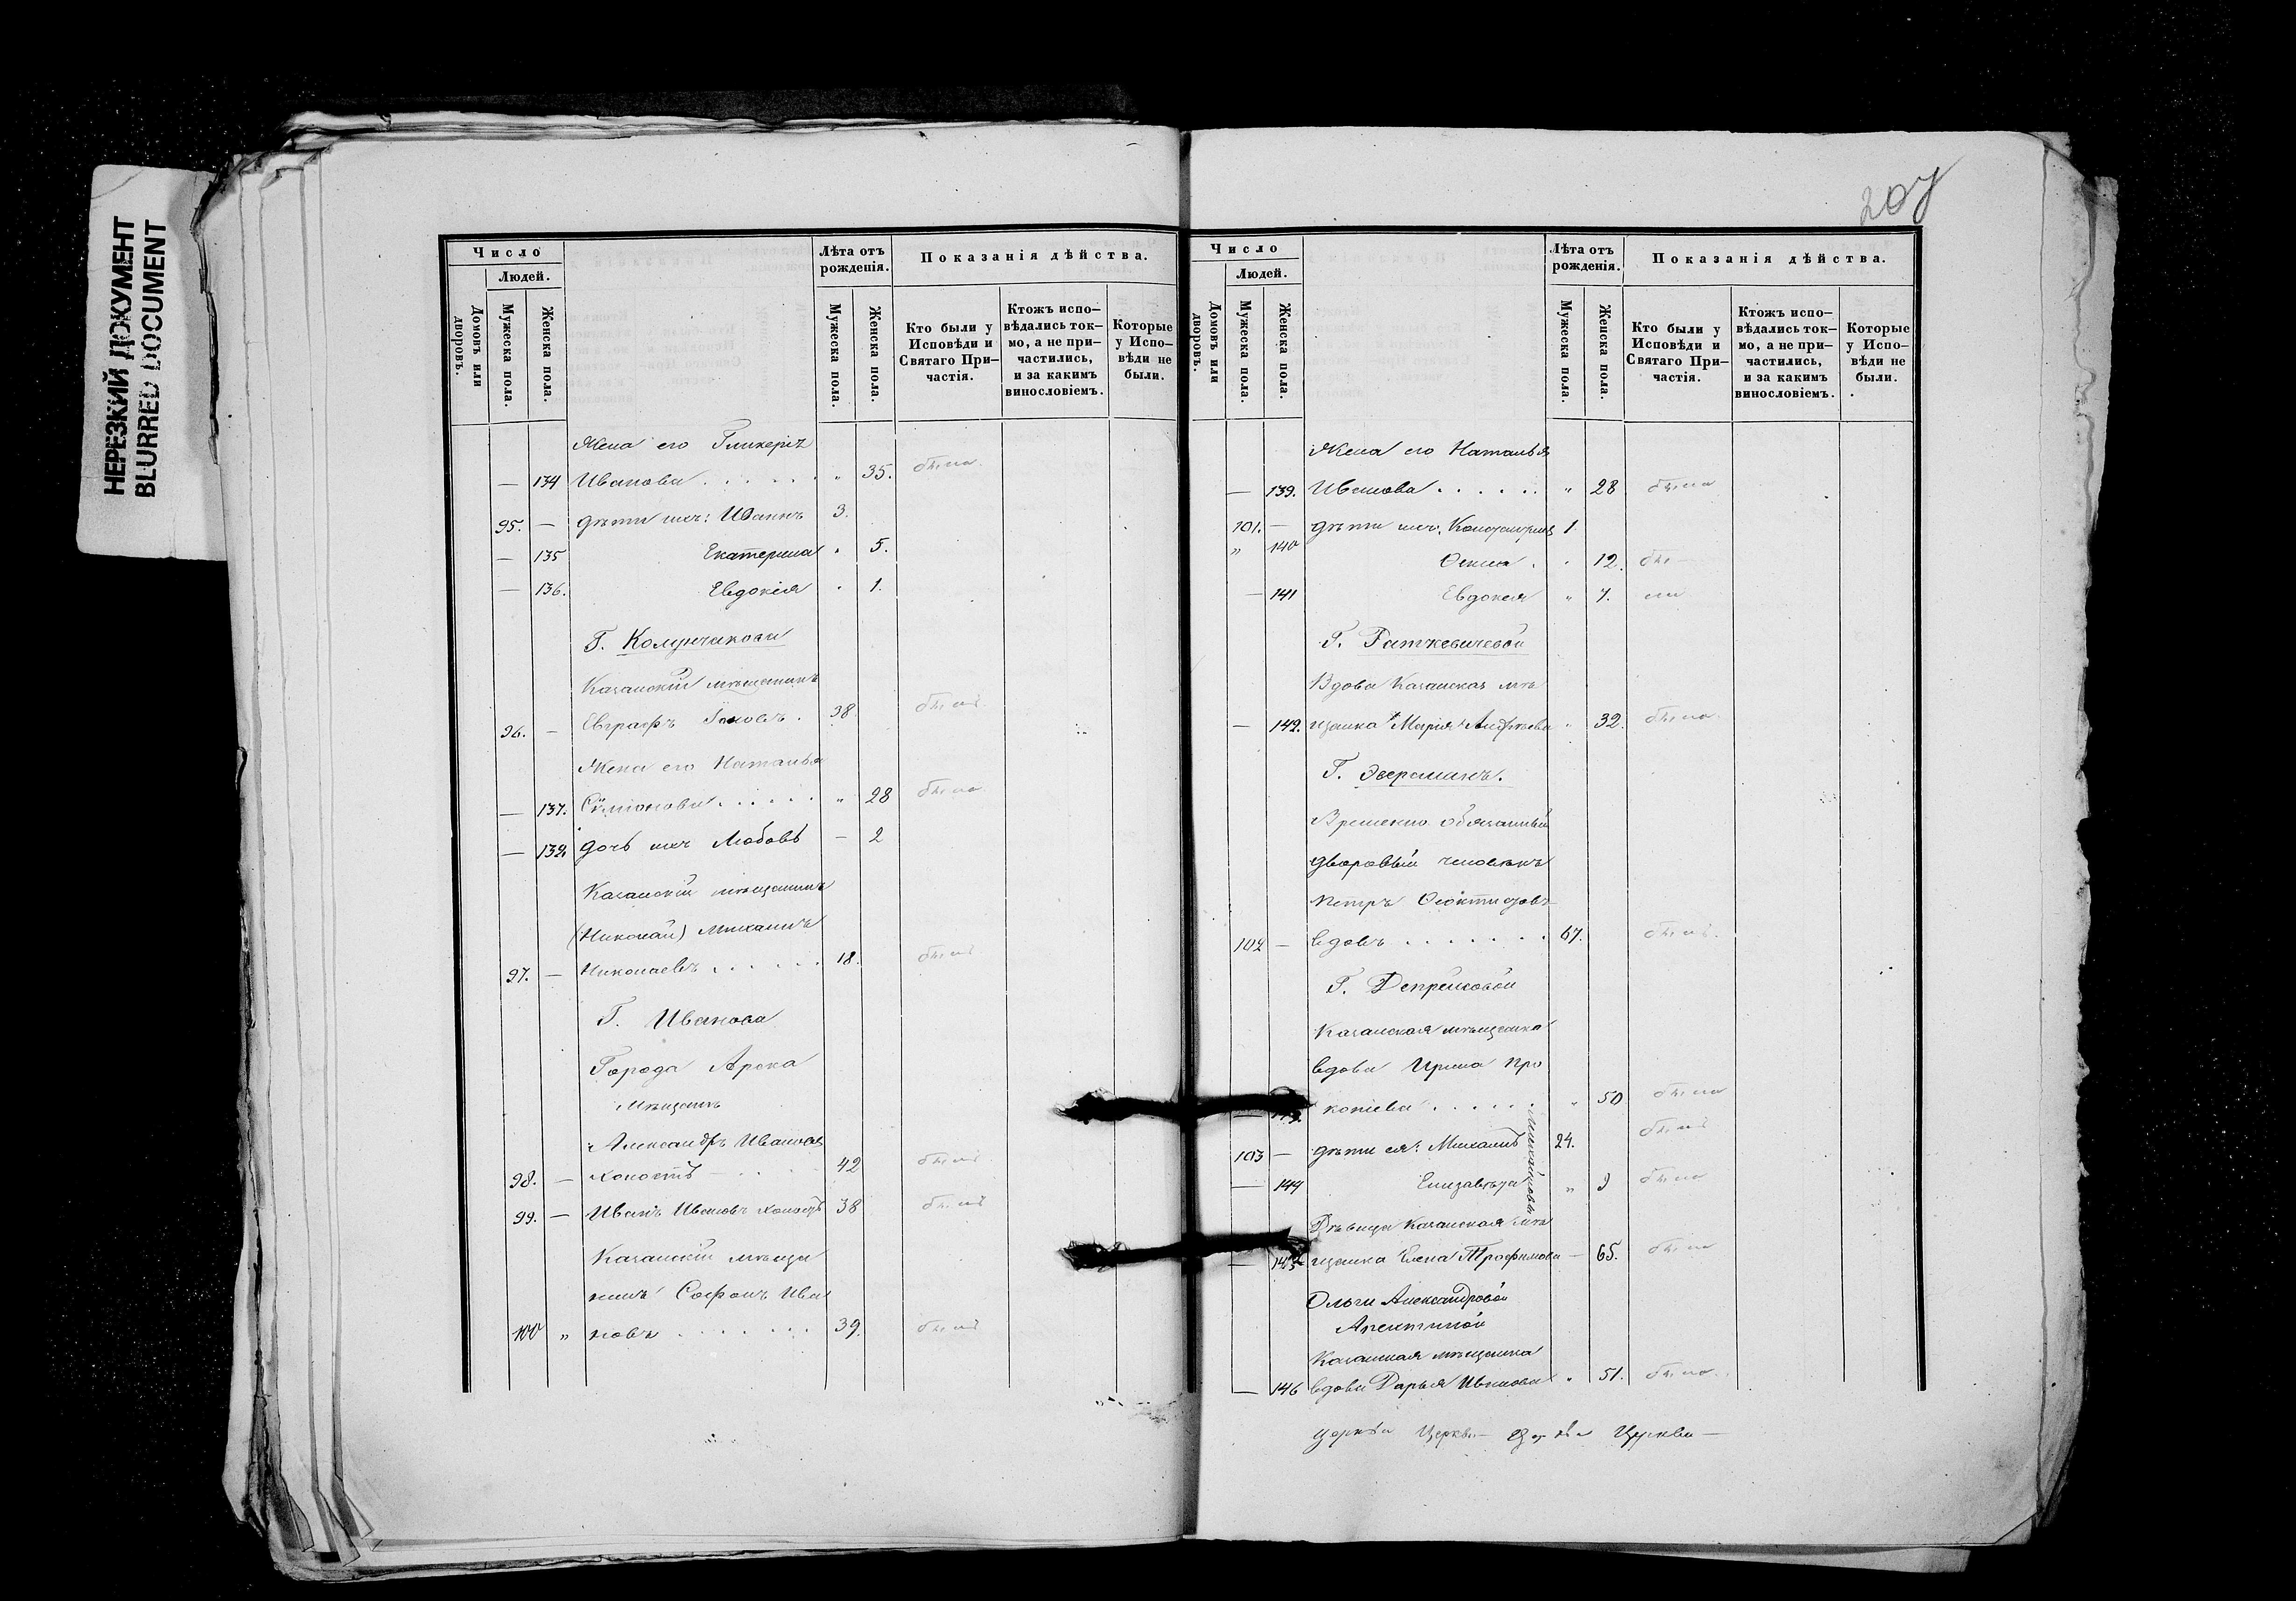 НЕРЕЗКИЙ ДОКУМЕНТ
BLURRED DOCUMENT
Число
Людей.
Домовъ или дворовъ.
Мужеска пола.
Женска пола.
Лѣта отъ рожденія.
Мужеска пола.
Женска пола.
Показанія дѣйства.
Кто были у Исповѣди и Святаго При–частія.
Ктожъ испо–вѣдались ток–мо, а не при–частились, и за какимъ винословіемъ.
Которые у Испо–вѣди не были.
Жена его Гликерія
— 134 Иванова . . . . . . „ 35. была
95. — дѣти ихъ: Иванъ 3.
— 135 Екатерина „ 5.
— 136. Евдокія „ 1.
Г.
Казанскій мѣщанинъ
96. — Евграфъ 38. былъ
Жена его Наталья
— 137. Симіонова . . . . . „ 28 была
— 138. дочь ихъ Любовь — 2
Казанскій мѣщанинъ
(Николай) Михаилъ
97. — Николаевъ . . . . . 18. былъ
Г. Иванова
Города Арска
мѣщане
Александръ Ивановъ
98. — холостъ 42 былъ
99. — Иванъ Ивановъ холостъ 38 былъ
Казанскій мѣща
нинъ Софонъ Ива
100 „ новъ . . . . . . . 39. былъ
207
Число
Людей.
Домовъ или дворовъ.
Мужеска пола.
Женска пола.
Лѣта отъ рожденія.
Мужеска пола.
Женска пола.
Показанія дѣйства.
Кто были у Исповѣди и Святаго При–частія.
Ктожъ испо–вѣдались ток–мо, а не при–частились, и за какимъ винословіемъ.
Которые у Испо–вѣди не были.
Жена его Наталья
— 139. Иванова . . . . . . „ 28 была
101. — дѣти ихъ: Константинъ 1
„ 140 . „ 12. бы—
— 141 Евдокія „ 7. ли
Г. Раткевичевой
Вдова Казанская мѣ
— 142. щанка Марія Андрѣева „ 32. была
Г.
Временно обязанный
дворовый человѣкъ
Петръ
102 — вдовъ . . . . . . . 67. былъ
Г. Депрейсовой
Казанская мѣщанка
вдова Ирина Про
копіева . . . . . „ 50 была
103 — дѣти ея: Михаилъ 24. былъ
Михайловы
— 144 Елизавета „ 9 была
Дѣвица Казанская мѣ
— 145 щанка Елена Трофимова — 65. была
Ольги Александровой
Казанская мѣщанка
— 146 вдова Дарья Иванова „ 51. была
Церкви Церкви— Церкви Церкви—